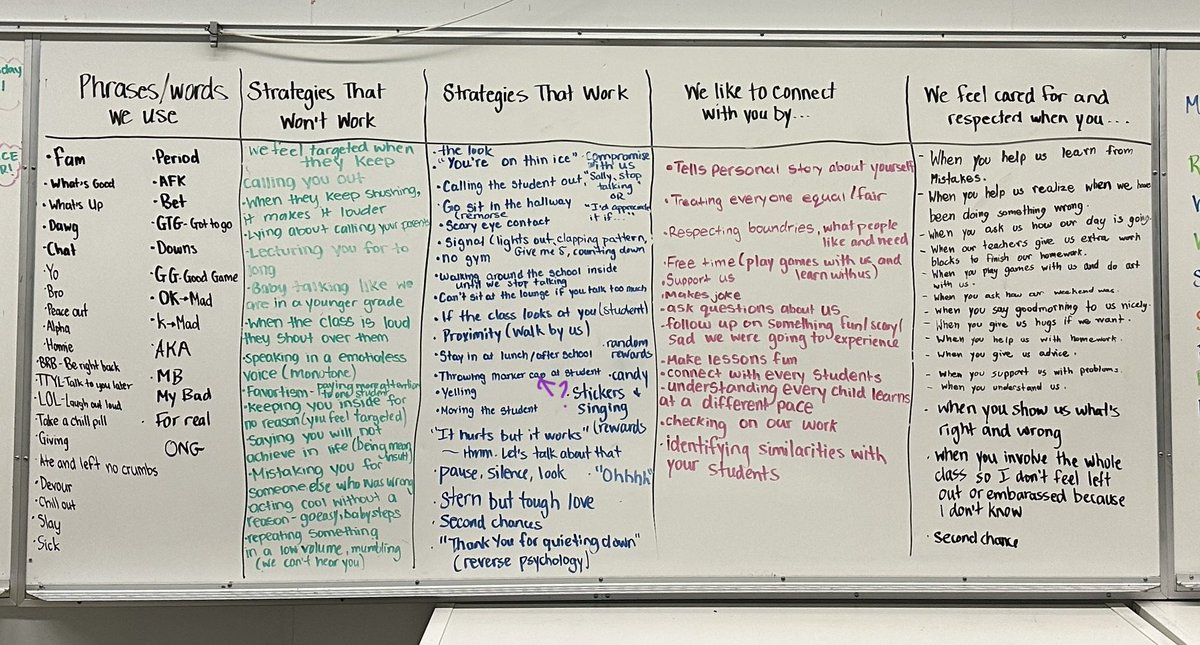 Phrases/words
we use
· Fam
· What's Good
· What's Up
· Dawg
· Chat
· Yo
· Bro
· Peace out
· Alpha
· Homie
· BRB - Be right back
· TTYL - Talk to you later
· LOL - Laugh out loud
· Take a chill pill
· Giving
· Ate and left no crumbs
· Devour
· Chill out
· Slay
· Sick
· Period
· AFK
· Bet
· GTG - Got to go
· Downs
· GG - Good Game
· OK→Mad
· K→Mad
· AKA
· MB
My Bad
· For real
ONG
Strategies That
Won't Work
· We feel targeted when
they keep
calling you out
· When they keep shushing,
it makes it louder
· Lying about calling your parents
· Lecturing you for to
long
· Baby talking like we
are in a younger grade
· when the class is loud
they shout over them
· speaking in a emotionless
voice (monotone)
· Favortism - paying more attention
to one student
· keeping you inside for
no reason (you feel targeted)
· saying you will not
achieve in life (being mean, insult)
· Mistaking you for
someone else who was wrong
· acting cool without a
reason - go easy, baby steps
· repeating something
in a low volume, mumbling
(we can't hear you)
Strategies That Work
· the look
· "You're on thin ice"
· Calling the student out
· Go sit in the hallway
(remorse
· Scary eye contact
· Signal (lights out, clapping pattern,
Give me 5, counting down
· no gym
· Walking around the school inside
until we stop talking
· Can't sit at the lounge if you talk too much
· If the class looks at you (student)
· Proximity (walk by us)
· Stay in at lunch/after school
· Throwing marker cap at student
?
· Yelling
· Moving the student
"It hurts but it works"
~ Hmm. Let's talk about that
· pause, silence, look
· "Ohhhh"
· Stern but tough love
· Second chances
· "Thank You for quieting down"
(reverse psychology)
· Compromise
with us
"Sally, stop
talking
OR
"I'd appreciate
it if....."
· random
rewards
· candy
· stickers &
singing
(rewards
We like to connect
with you by...
· Tells personal story about yourself
· Treating everyone equal/fair
· Respecting boundries, what people
like and need
· Free time (play games with us and
learn with us)
· Support us
· Makes joke
· ask questions about us
· follow up on something fun/scary/
sad we were going to experience
· Make lessons fun
· connect with every students
· understanding every child learns
at a different pace
· checking on our work
· identifying similarities with
your students
We feel cared for and
respected when you...
- When you help us learn from
Mistakes.
- When you help us realize when we have
been doing something wrong.
- When you ask us how our day is going.
- When our teachers give us extra work
blocks to finish our homework.
- When you play games with us and do art
with us.
- When you ask how our weekend was.
- When you say goodmorning to us nicely.
- When you give us hugs if we want.
- When you help us with homework.
- When you give us advice.
- When you support us with problems.
- When you understand us.
· when you show us what's
right and wrong
· when you involve the whole
class so I don't feel left
out or embarassed because
I don't know
· second chance